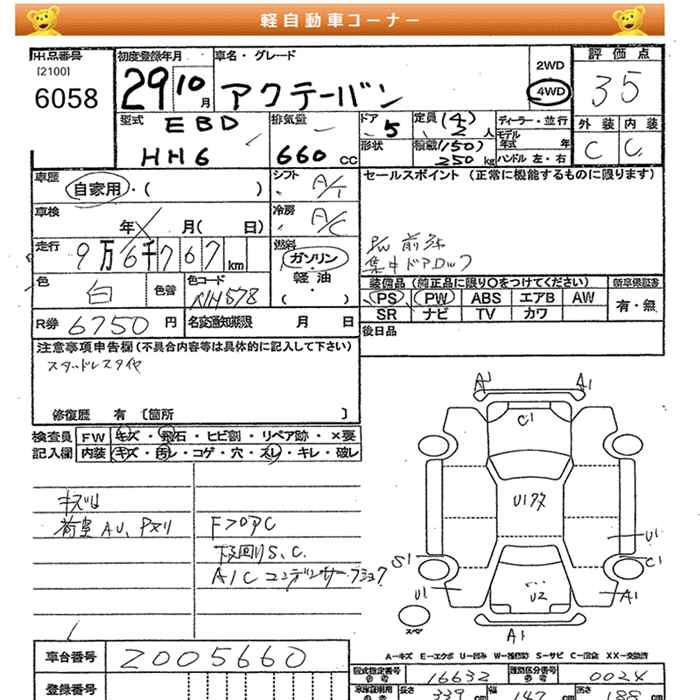 軽自動車コーナー
出品番号 初度登録年月 車名・グレード 2WD 評価点
[2100]
6058 29 10月 アクテーバン 4WD 35
型式 排気量 ドア 定員 (4) ディーラー・並行 外装 内装
EBD 5 2人 モデル年式 年 C C
HH6 660 cc 形状 積載 (150) 250kg ハンドル 左・右
車歴 自家用・( ) シフト A/T セールスポイント (正常に機能するものに限ります)
車検 年 月( 日) 冷房 A/C
走行 9万6千767km 燃料 ガソリン・軽油・( )
P/W 前席
集中ドアロック
色 白 色替 色コード NH578
装備品 (純正品に限り○をつけてください) 新車保証書
PS PW ABS エアB AW 有・無
SR ナビ TV カワ
R券 6750円 名変通知期限 月 日 後日品
注意事項申告欄 (不具合内容等は具体的に記入して下さい)
スタッドレスタイヤ
修復歴 有 [箇所 ]
検査員 FW キズ・飛石・ヒビ割・リペア跡・×要
記入欄 内装 キズ・汚レ・コゲ・穴・スレ・キレ・破レ
キズは
荷室 AU、Pメリ FフロアC
下廻りS、C.
A/Cコンデンサークション
A1 A1
C1
U1アタ
U1
S1 C1
U1 U2 A1
スペア
A1
A－キズ E－エクボ U－凹み W－波(修跡) S－サビ C－腐食 XX－交換済
車台番号 2005660
型式指定番号 参考 16632 類別区分番号 参考 0024
登録番号
長さ 339cm 幅 147cm 高さ 188cm